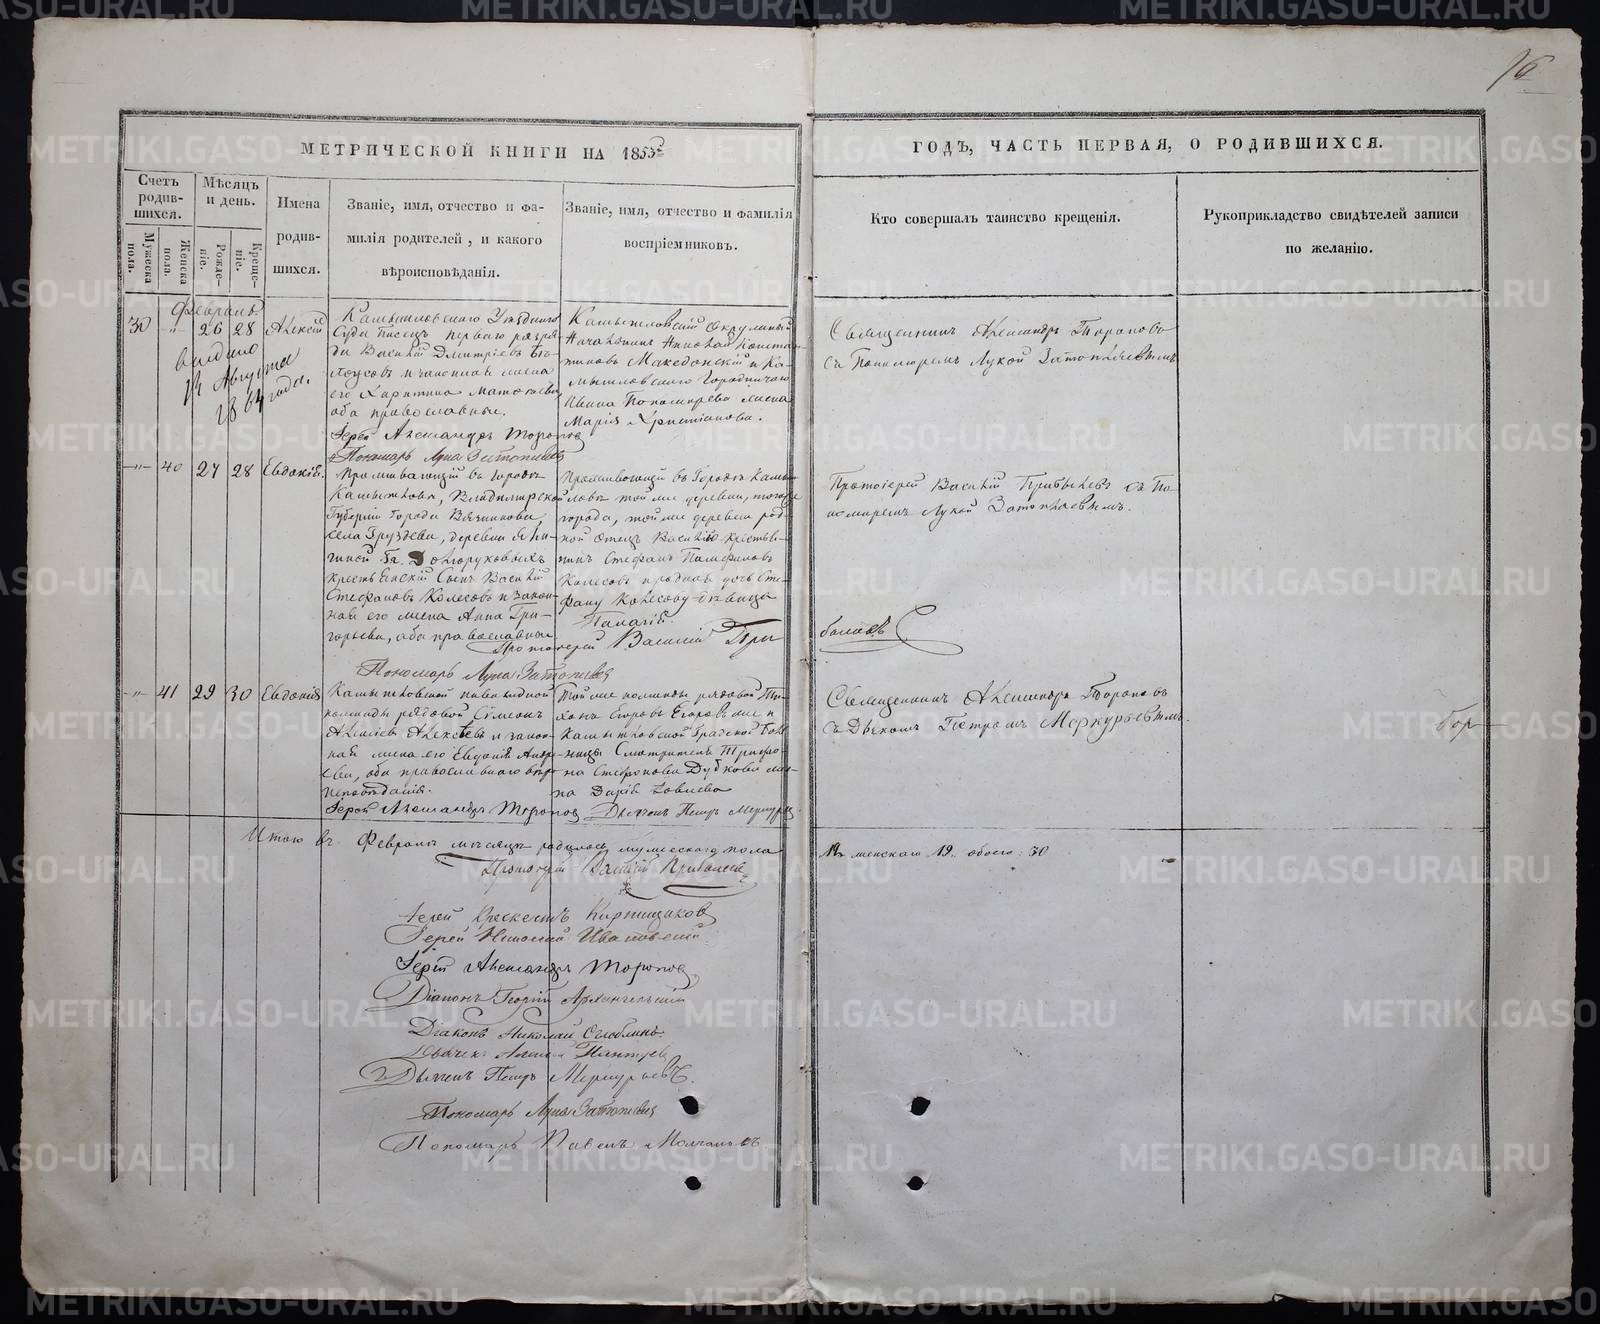 16
МЕТРИЧЕСКОЙ КНИГИ НА 1853й
ГОДЪ, ЧАСТЬ ПЕРВАЯ, О РОДИВШИХСЯ.
Счетъ родив-шихся.
Мужеска пола.
Женска пола.
Мѣсяцъ и день.
Рожде-ніе.
Креще-ніе.
Имена
родив-
шихся.
Званіе, имя, отчество и фа-
милія родителей, и какого
вѣроисповѣданія.
Званіе, имя, отчество и фамилія
воспріемниковъ.
Кто совершалъ таинство крещенія.
Рукоприкладство свидѣтелей записи
по желанію.
Февраль
30 " 26 28 Алексій
выдано
Августа
1864 года.
Камышловскаго Уѣзднаго
Суда писецъ перваго разря-
да Василій Дмитріевъ
и законная жена
его
оба православные.
Іерей Александръ Тороповъ
Пономарь Лука
Камышловскій Окружный
Начальникъ Николай Конста-
тиновъ Македонскій и Ка-
мышловскаго Городничаго
жена
Марія Христіанова.
Священникъ Александръ Тороповъ
съ Пономаремъ Лукой
" 40 27 28 Евдокія.
Проживающій въ Городѣ
Камышловѣ, Владимирской
Губерніи Города Вязникова,
села Груздева, деревни
крестьянскій сынъ Василій
Стефановъ Колесовъ и закон-
ная его жена Анна Гри-
горьева, оба православные
Проживающій въ Городѣ Камы-
ловѣ той же деревни, того же
города, той же деревни род-
ной отецъ Василію крестья-
нинъ Стефанъ Памфиловъ
Колесовъ и родная дочь Сте-
фану Колесову дѣвица
Пелагія.
Протоіерей Василій При
балевъ
Пономарь Лука
Протоіерей Василій Прибылевъ съ По-
номаремъ Лукой
" 41 29 30 Евдокія
Камышловской инвалидной
команды рядовой Сѵмеонъ
Алексѣевъ и закон-
ная жена его Евдокія Андре-
ева, оба православнаго вѣро-
исповѣданія.
Іерей Александръ Тороповъ
Той же команды рядовой Ти-
хонъ Егоровъ Егоровъ же и
Камышловской Градской Боль-
ницы Смотрителя Трифо-
на Стефанова Дубкова же-
на Дарія
Дьячекъ Петръ Меркурь
Священникъ Александръ Тороповъ
съ Дьячкомъ Петромъ Меркурьевымъ.
Итого въ Февралѣ мѣсяцѣ родилось мужескаго пола
женскаго 19. обоего: 30
Протоіерей Василій Прибылевъ
Іерей Крискентъ Кирпищиковъ
Іерей Николай Ивановскій
Іерей Александръ Тороповъ
Діаконъ Георгій Архангельскій
Діаконъ Николай Оглоблинъ.
Дьячекъ Алексій
Дьячекъ Петръ Меркурьевъ.
Пономарь Лука
Пономарь Павелъ Молчановъ
METRIKI.GASO-URAL.RU